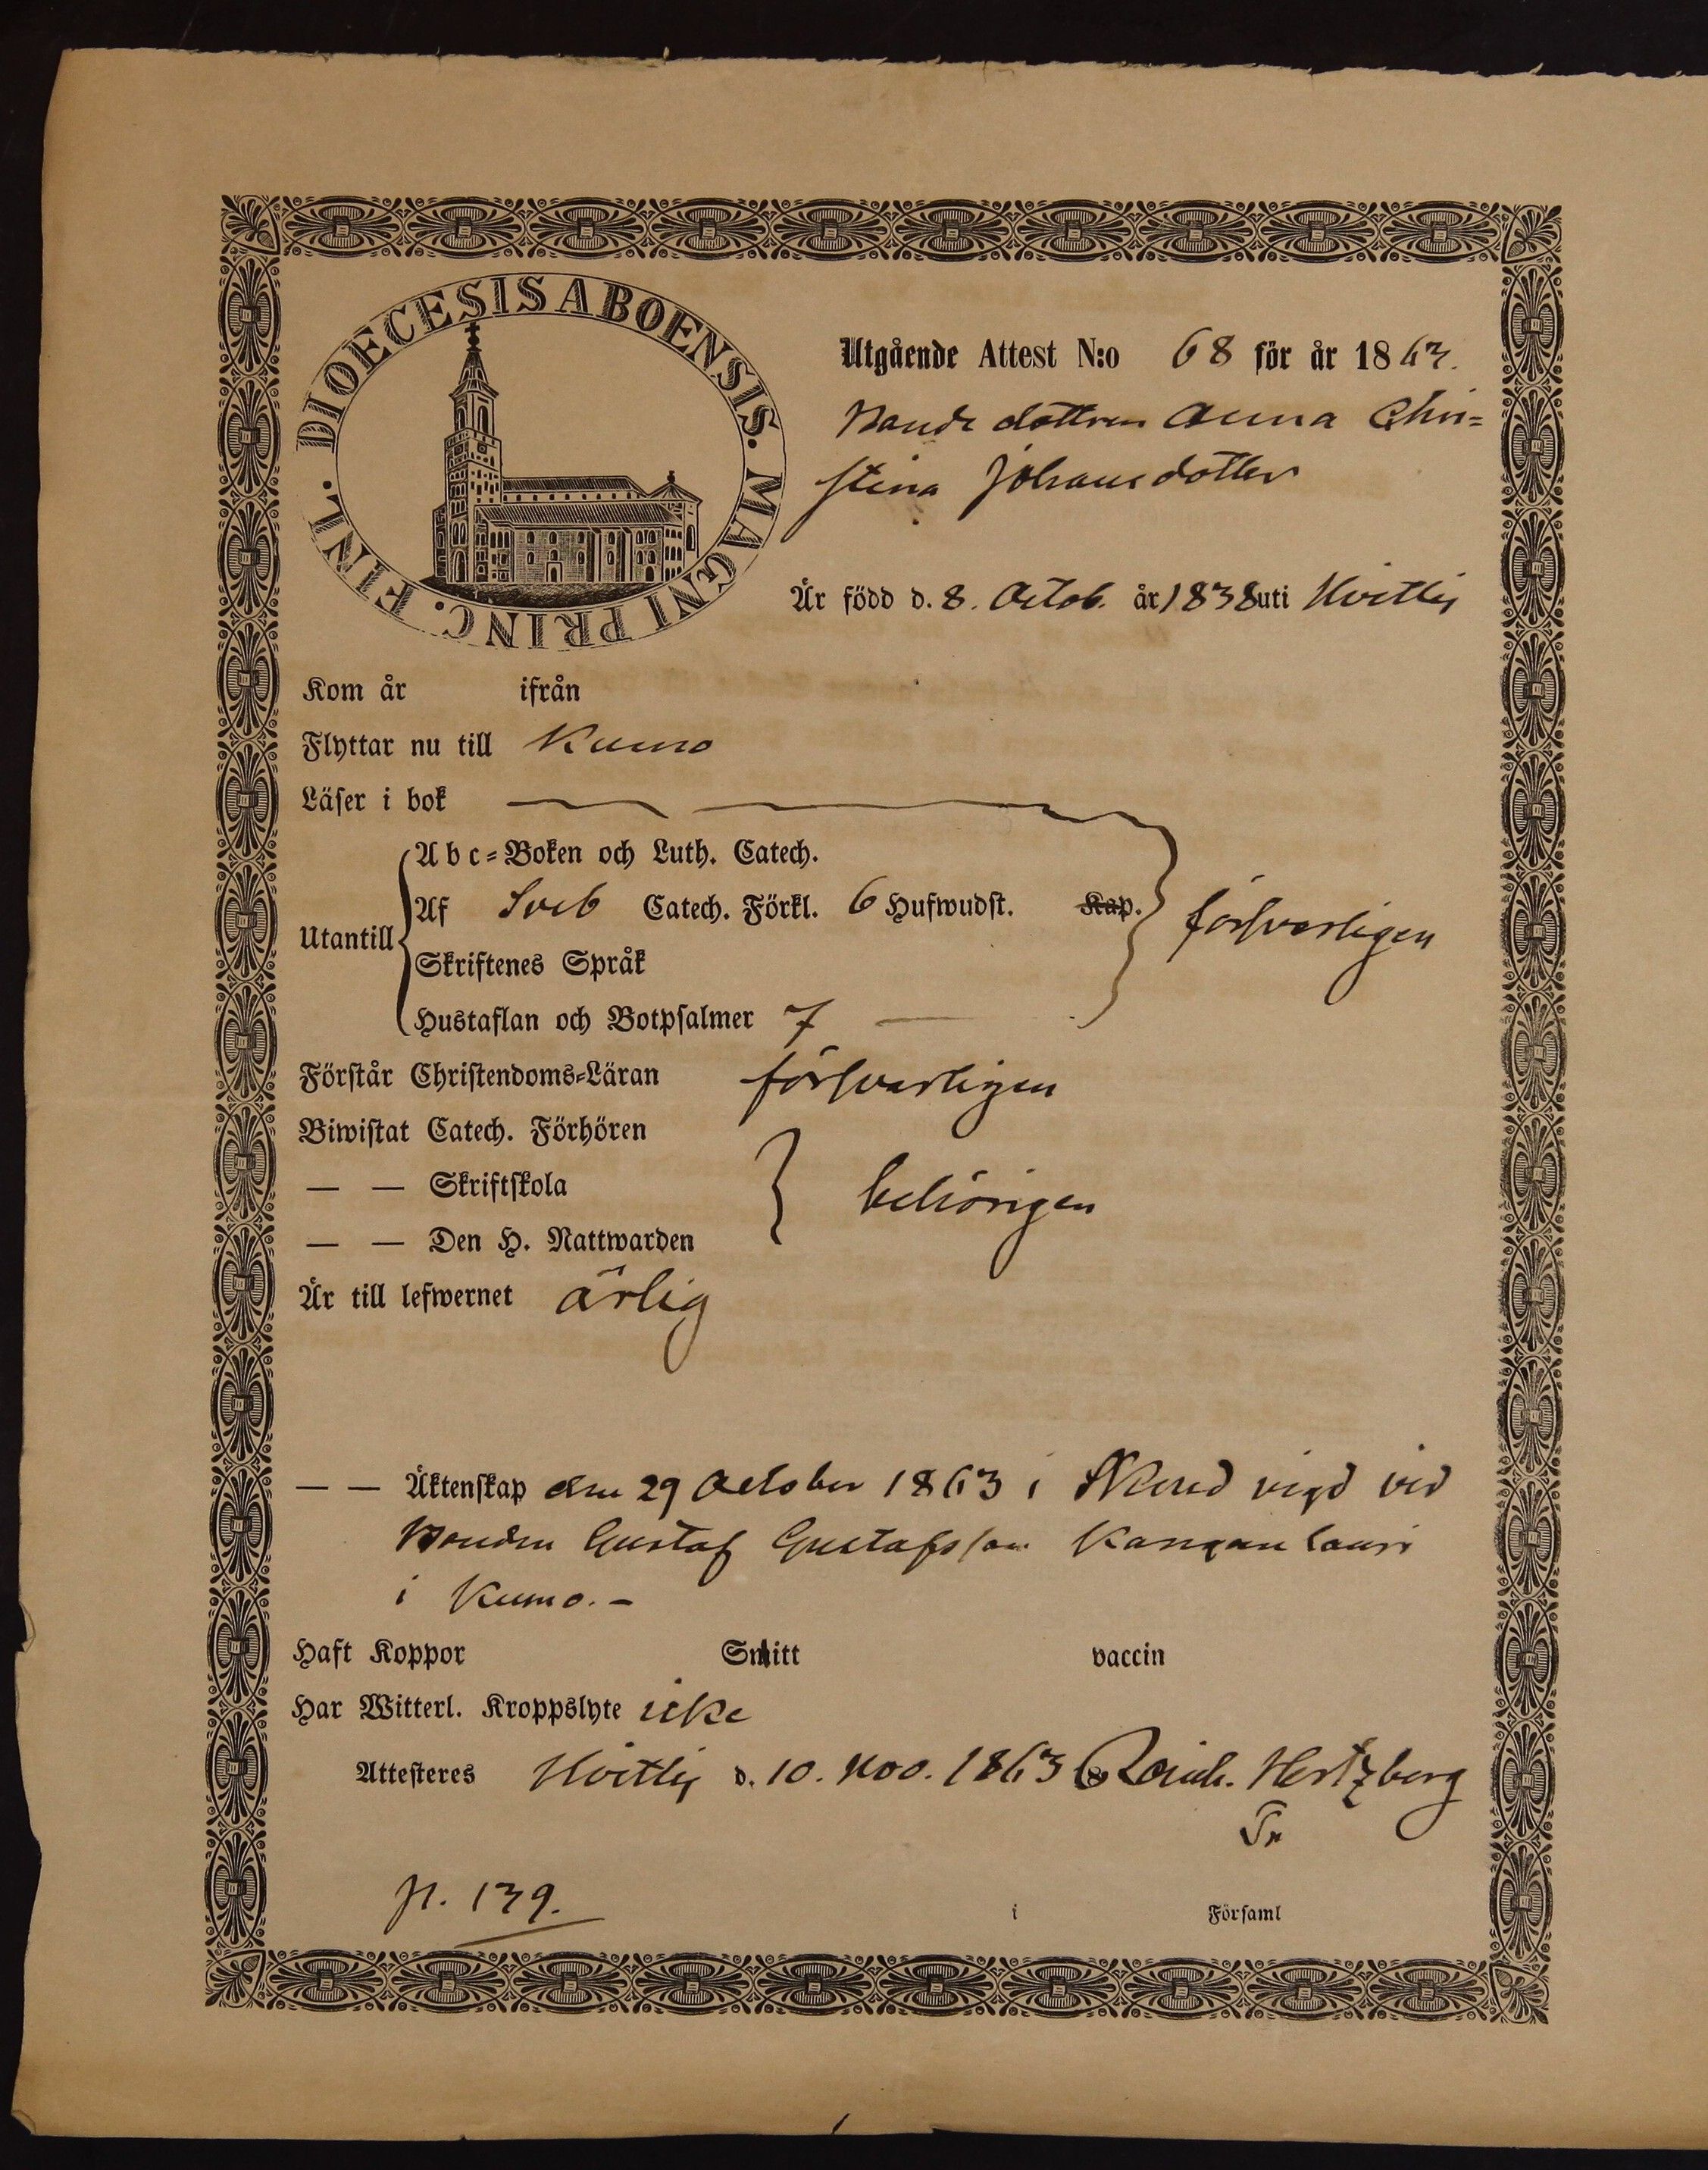 DIOECESIS ABOENSIS. MAGNI PRINC. FINL.
Utgående Attest N:o 68 för år 1863.
Bondedottren Anna Chri=
stina Johansdotter
Är född d. 8. Octob. år 1838 uti Hvittis
Kom år ifrån
Flyttar nu till Kumo
Läser i bok
Utantill
Abc=Boken och Luth. Catech.
Af Sveb Catech. Förkl. 6 Hufwudst. Kap. försvarligen
Skriftenes Språk
Hustaflan och Botpsalmer 7
Förstår Christendoms=Läran försvarligen
Biwistat Catech. Förhören
— — Skriftskola behörigen
— — Den H. Nattwarden
Är till lefwernet ärlig
— — Äktenskap den 29 October 1863 i vigd vid
Bonden Gustaf Gustafsson
i Kumo. –
Haft Koppor Smitt vaccin
Har Witterl. Kroppslyte icke
Attesteres Hvittis d. 10. Nov. 1863 Hertzberg
p. 139.
i Församl